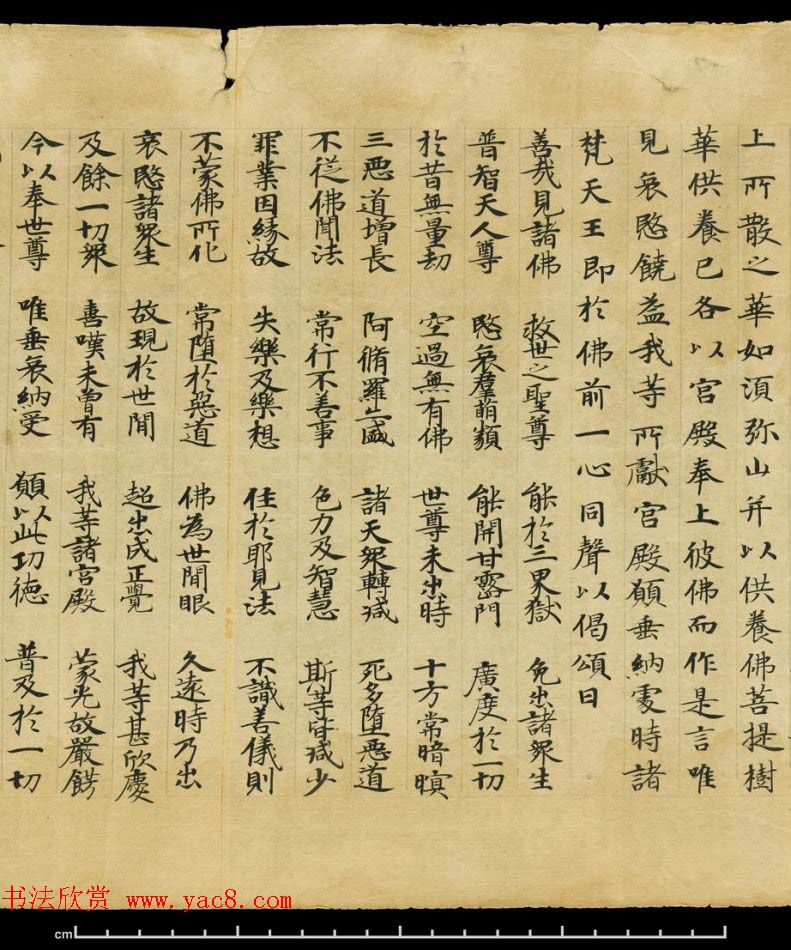 上所散之華如湏弥山并以供養佛菩提樹
華供養已各以宫殿奉上彼佛而作是言唯
見哀愍饒益我等所獻宫殿願垂納處時諸
梵天王即於佛前一心同聲以偈頌曰
善哉見諸佛 救世之聖尊 能於三界獄 免出諸衆生
普智天人尊 愍哀羣萠類 能開甘露門 廣度於一切
於昔無量劫 空過無有佛 世尊未出時 十方常暗暝
三惡道增長 阿脩羅亦盛 諸天衆轉減 死多墮惡道
不從佛聞法 常行不善事 色力及智慧 斯等皆減少
罪業因緣故 失樂及樂想 住於耶見法 不識善儀則
不蒙佛所化 常墮於惡道 佛為世間眼 久遠時乃出
哀愍諸衆生 故現於世間 超出成正覺 我等甚欣慶
及餘一切衆 喜嘆未曽有 我等諸宫殿 蒙光故嚴餝
今以奉世尊 唯垂哀納受 願以此功德 普及於一切
书法欣赏 www.yac8.com
cm